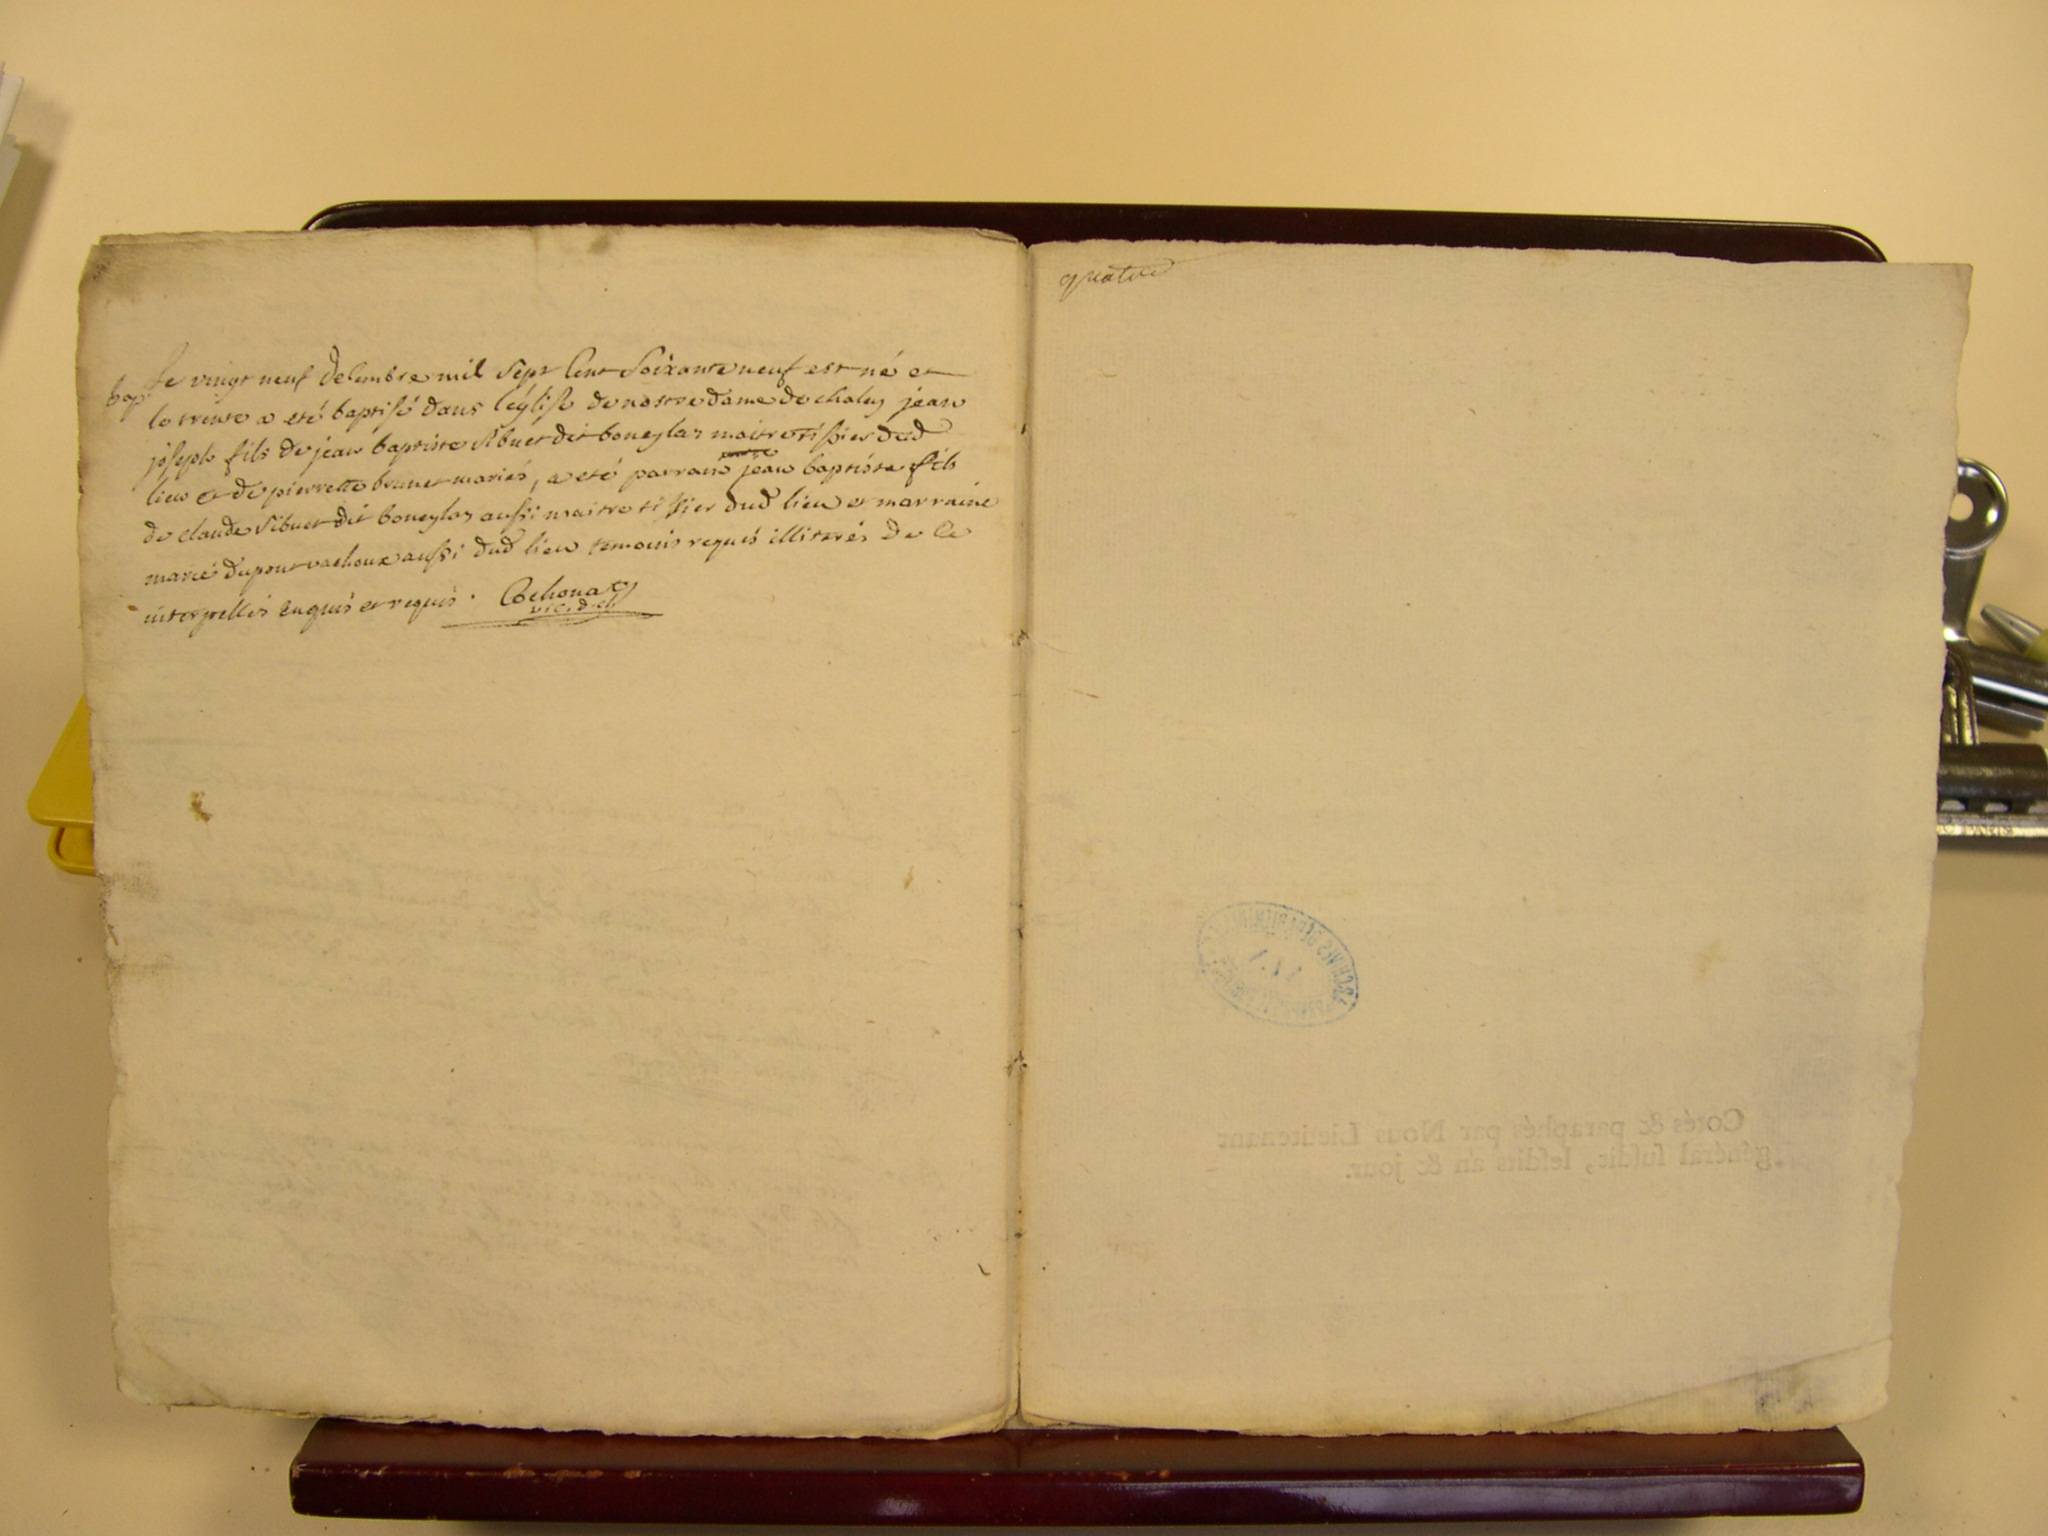 bap.
Le vingt neuf decembre mil sept cent soixante neuf est né et
le trente a eté baptisé dans léglise de nostre dame de chaley jean
joseph fils de jean baptiste sibuet dit boneylas maitre tissier dud
lieu et de pierrette brunet mariés, a eté parrain jean baptiste fils
de claude sibuet dit boneylas aussi maitre tissier dud lieu et marraine
marie dupont aussi dud lieu temoins requis illiterés de ce
interpellés enquis et requis. Cochonat
vic. d. ch.
quatre
Cotés & paraphés par Nous Lieutenant
général susdit, lesdits an & jour.